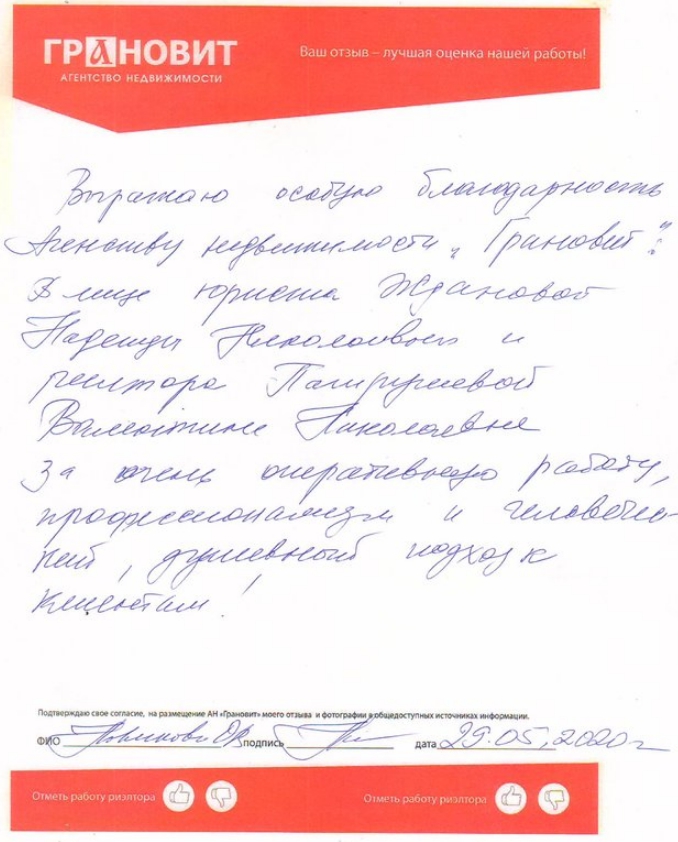 ГРАНОВИТ
АГЕНТСТВО НЕДВИЖИМОСТИ
Ваш отзыв – лучшая оценка нашей работы!
Выражаю особую благодарность
Агенству недвижимости „Грановит":
В лице юриста Ждановой
Надежды Николаевны и
риэлтора
Валентине Николаевне
За очень оперативную работу,
профессионализм и человечес-
кий, душевный подход к
клиентам!
Подтверждаю свое согласие, на размещение АН «Грановит» моего отзыва и фотографии в общедоступных источниках информации.
ФИО подпись дата 29.05.2020г
Отметь работу риэлтора Отметь работу риэлтора